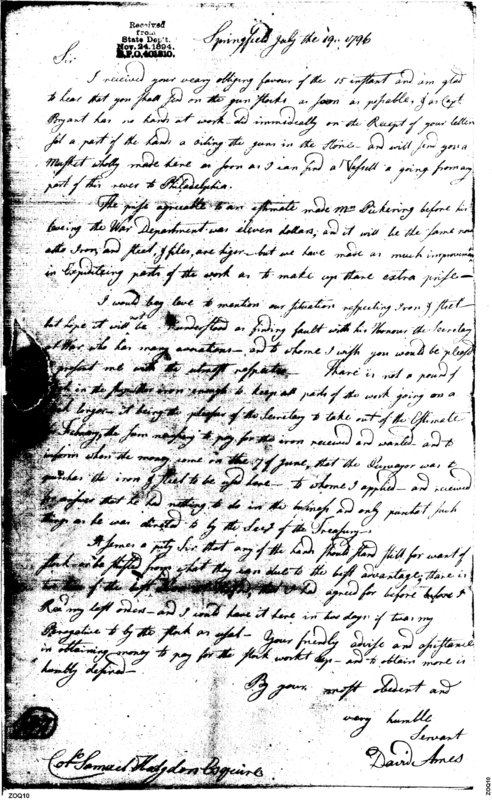 Received
from
State Dep't.
Nov. 24. 1894.
R.P.O. 401310.
Springfield July the 19.. 1796
Sir
I received your veary obliging favour of the 15 instant and am glad
to hear that you shall send on the gun stocks as soon as possable, & as Capt
Bryant has no hands at work did immedically on the Recept of your letter
set a part of the hands a oiling the guns in the Store and will send you a
Musket wholly made hane as soon as I can find a Vessell a going from any
part of this rever to Philadelphia.
The prise agreeable to an estimate made Mr. Pickering before his
leveing the War Department was eleven dollars, and it will be the same now
altho Iron, and steel, & files, are higer but we have made as much improvement
in Expediteing parts of the work as to make up thare extra prise
I would beg leve to mention our situation respecting Iron & steel
but hope it will be understood as finding fault with his Honour the Secretary
of War who has many avocations and to whome I wish you would be pleased
present me with the utmost respects thare is not a pound of
in the iron enough to keep all parts of the work going on a
longer it being the pleasure of the Secretary to take out of the Estimate
Febury the sum nessesary to pay for the iron received and wanted and to
inform when the money came in the 7 of June, that the Purvayor was to
purches the iron & steel to be used hare to whome I applied and receved
for answer that he had nothing to do in the buisness and only purchest such
things as he was directed to by the Secy of the Treasury
It semes a pity Sir that any of the hands should stand still for want of
stock or be shifted from what they can due to the best advantage, thare is
of the best that I had agreed for before I
Recd my last orders and I could have it here in two days if twas my
Peragative to by the stock as usal Your friendly advise and assistance
in obtaining money to pay for the stock workt up and to obtain more is
humbly desired
By your most obedent and
veary humble
Servant
David Ames
Colo. Samuel Hodgdon Esquire
ZOQ10
ZOQ10